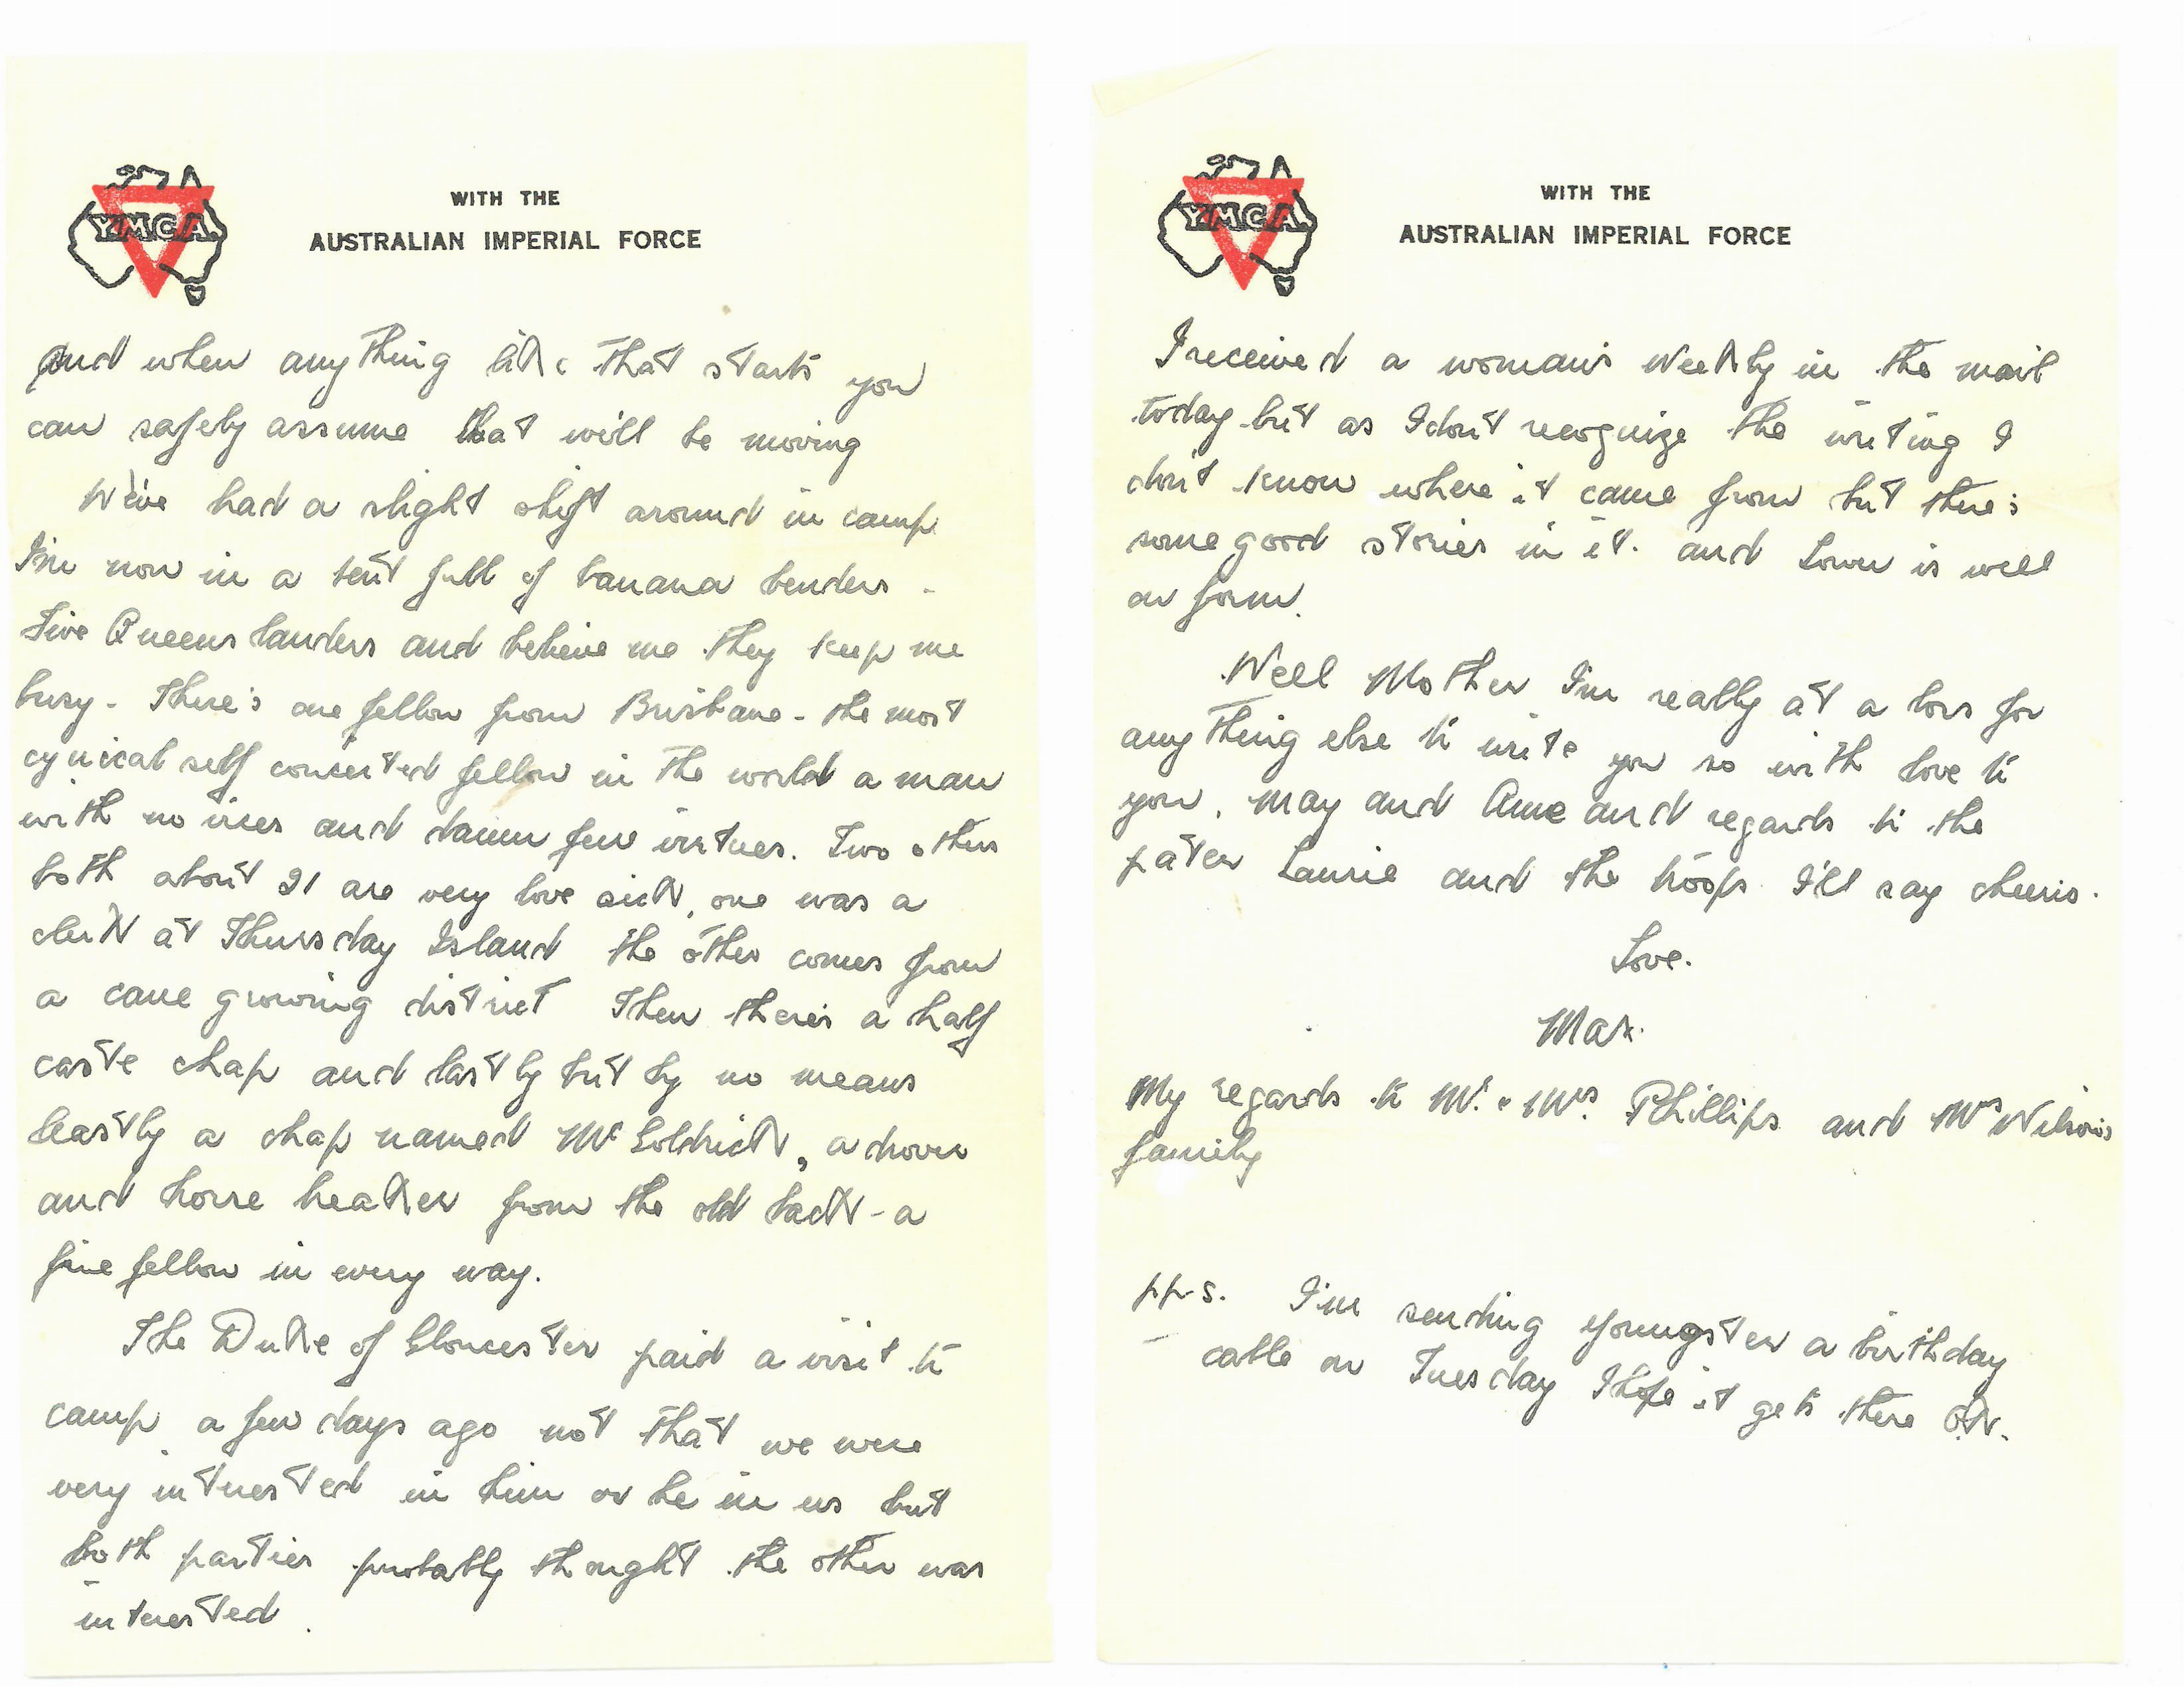 YMCA
WITH THE
AUSTRALIAN IMPERIAL FORCE
And when anything like that starts you
can safely assume that will be moving
We've had a slight shift around in camp
I'm now in a tent full of banana benders -
Five Queenslanders and believe me they keep me
busy - There's one fellow from Brisbane - the most
cynical self conceited fellow in the world a man
with no vices and damn few virtues. Two others
both about 21 are very love sick, one was a
clerk at Thursday Island the other comes from
a cane growing district Then there's a half
caste chap and lastly but by no means
leastly a chap named McGoldrick, a drover
and horse breaker from the old back - a
fine fellow in every way.
The Duke of Gloucester paid a visit to
camp a few days ago not that we were
very interested in him or he in us but
both parties probably thought the other was
interested.
YMCA
WITH THE
AUSTRALIAN IMPERIAL FORCE
I received a woman's Weekly in the mail
today but as I don't recognize the writing I
don't know where it came from but there's
some good stories in it. and Lower is well
on form.
Well Mother I'm really at a loss for
anything else to write you so with love to
you, May and and regards to the
pater Laurie and the troops I'll say cheerio.
Love.
Max.
My regards to Mr. & Mrs. Phillips and Mrs Nelson's
family
pp-s. I'm sending youngster a birthday
cable on Tuesday I hope it gets there OK.